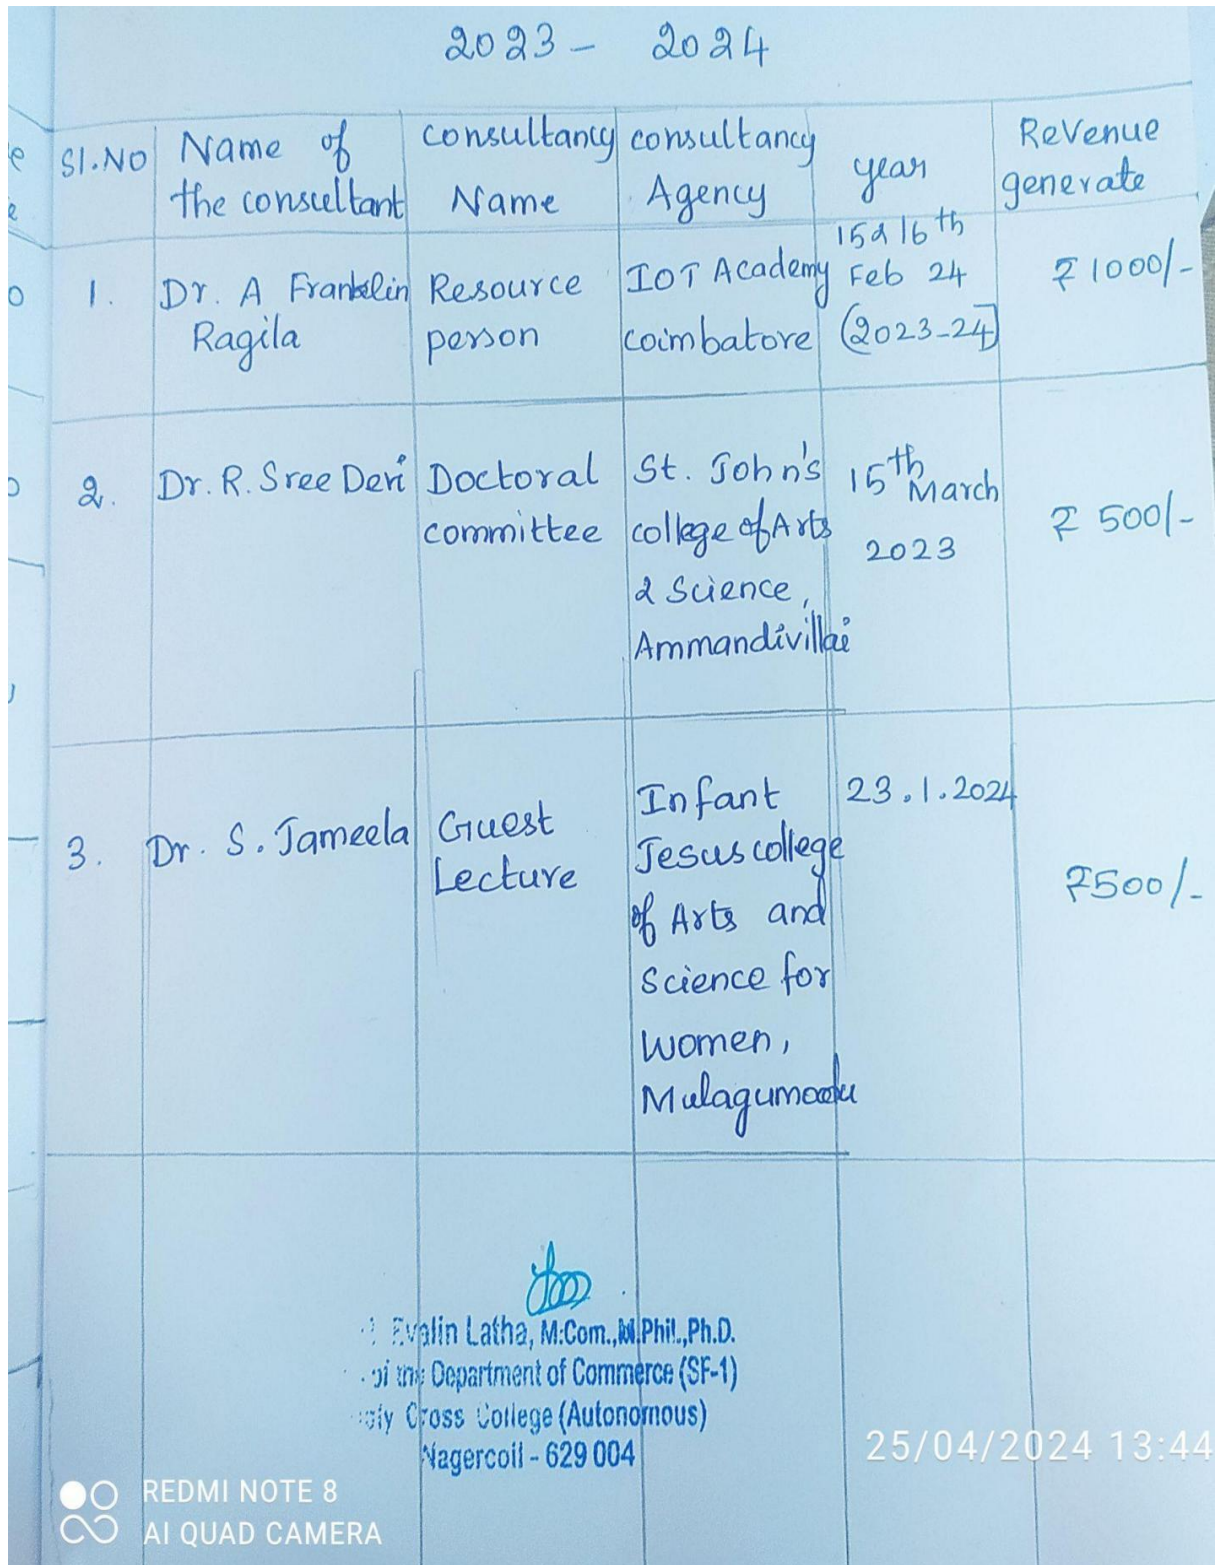 2023 - 2024
Sl.No
Name of
the consultant
consultancy
Name
consultancy
Agency
year
Revenue
generate
1.
Dr. A Franklin
Ragila
Resource
person
IOT Academy
coimbatore
15 & 16th
Feb 24
(2023-24)
₹ 1000/-
2.
Dr. R. Sree Devi
Doctoral
committee
St. John's
college of Arts
& Science,
Ammandivillai
15th March
2023
₹ 500/-
3.
Dr. S. Jameela
Guest
Lecture
Infant
Jesus college
of Arts and
Science for
women,
Mulagumoodu
23.1.2024
₹500/-
Evalin Latha, M.Com.,M.Phil.,Ph.D.
Department of Commerce (SF-1)
Cross College (Autonomous)
Nagercoil - 629 004
25/04/2024 13:44
REDMI NOTE 8
AI QUAD CAMERA